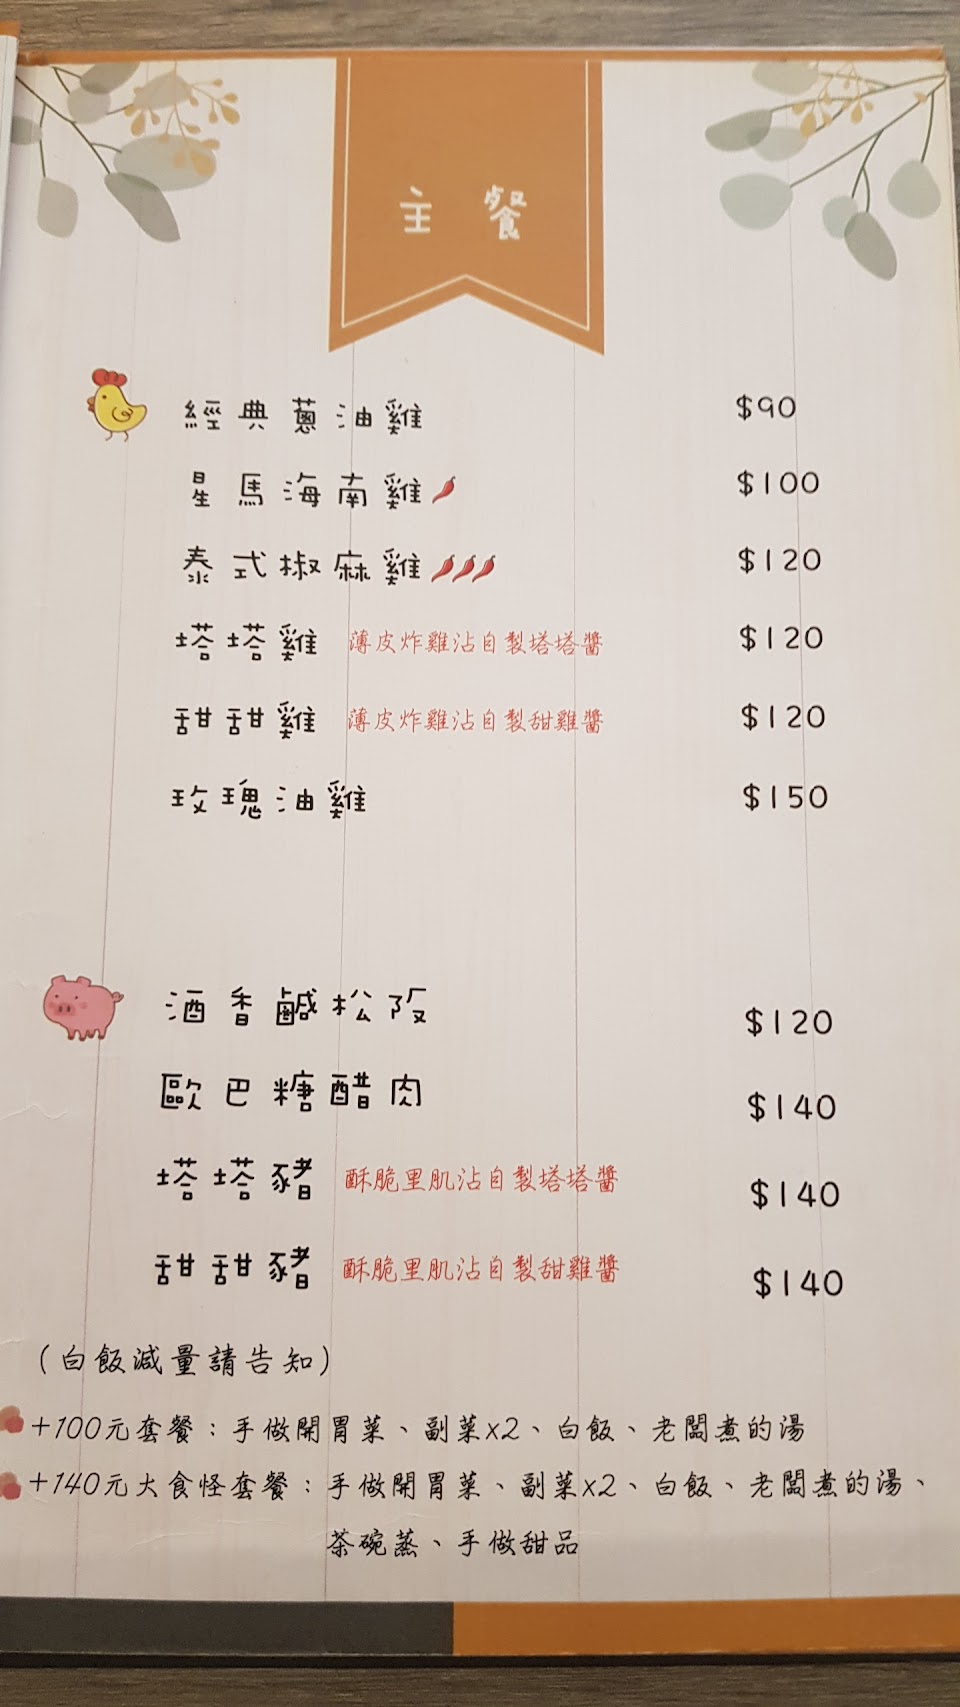 主餐
經典蔥油雞 $90
星馬海南雞 $100
泰式椒麻雞 $120
塔塔雞 薄皮炸雞沾自製塔塔醬 $120
甜甜雞 薄皮炸雞沾自製甜雞醬 $120
玫瑰油雞 $150
酒香鹹松阪 $120
歐巴糖醋肉 $140
塔塔豬 酥脆里肌沾自製塔塔醬 $140
甜甜豬 酥脆里肌沾自製甜雞醬 $140
(白飯減量請告知)
+100元套餐：手做開胃菜、副菜x2、白飯、老闆煮的湯
+140元大食怪套餐：手做開胃菜、副菜x2、白飯、老闆煮的湯、
茶碗蒸、手做甜品